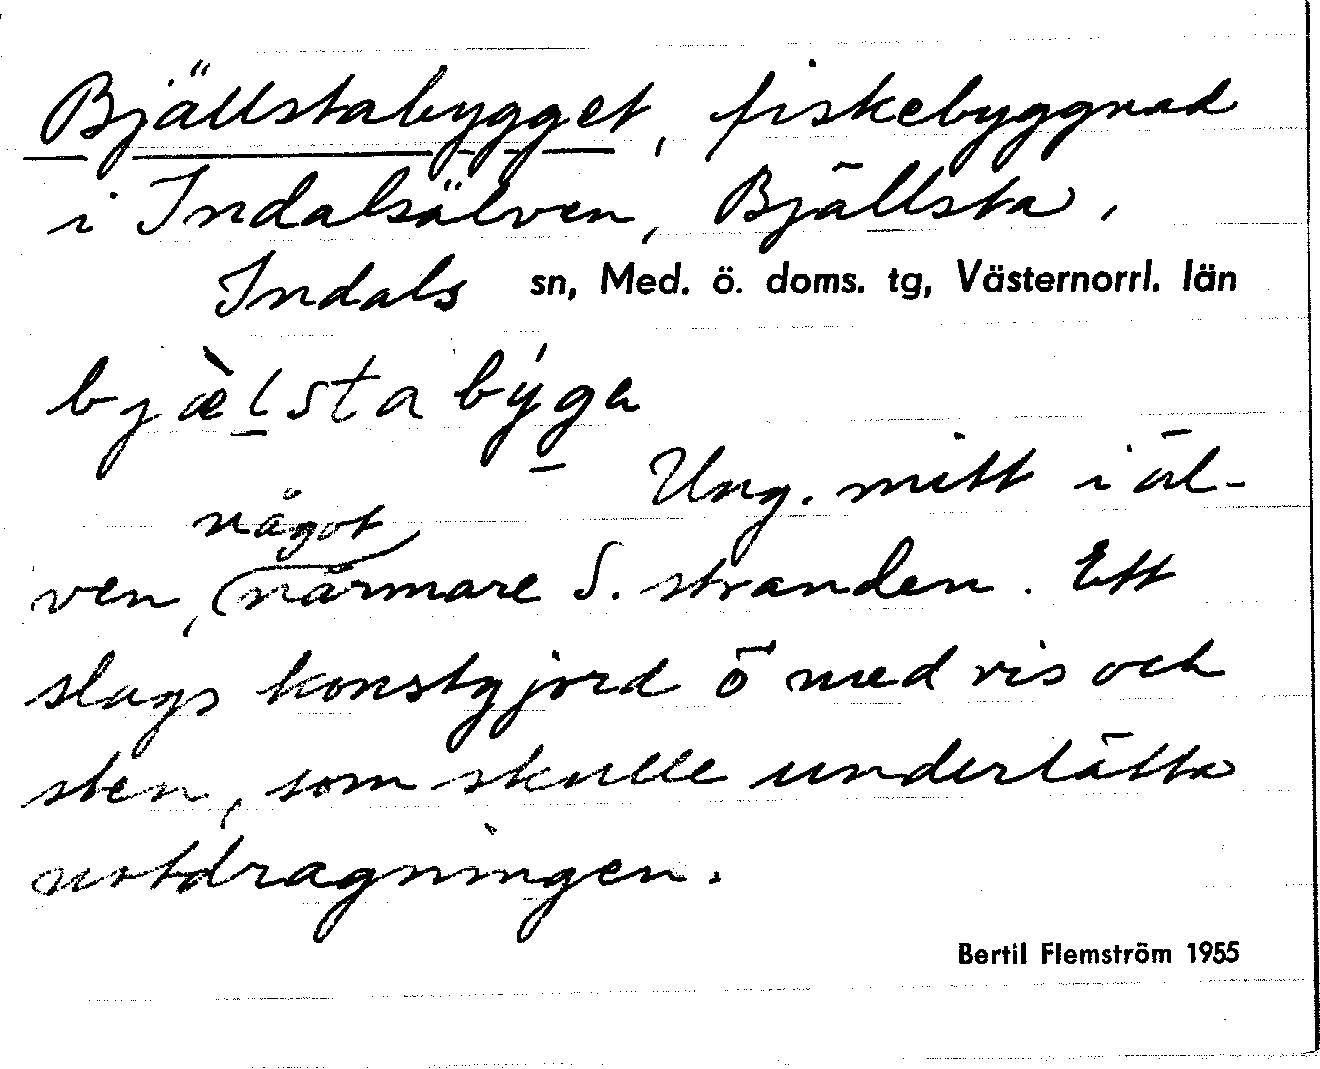 Bjällstabygget, fiskebyggnad
i Indalsälven, Bjällsta,
Indals sn, Med. ö. doms. tg, Västernorrl. län
bjæ̀lstabýga
Ung. mitt i äl-
något
ven, närmare S. stranden. Ett
slags konstgjord ö med ris och
sten, som skulle underlätta
notdragningen.
Bertil Flemström 1955